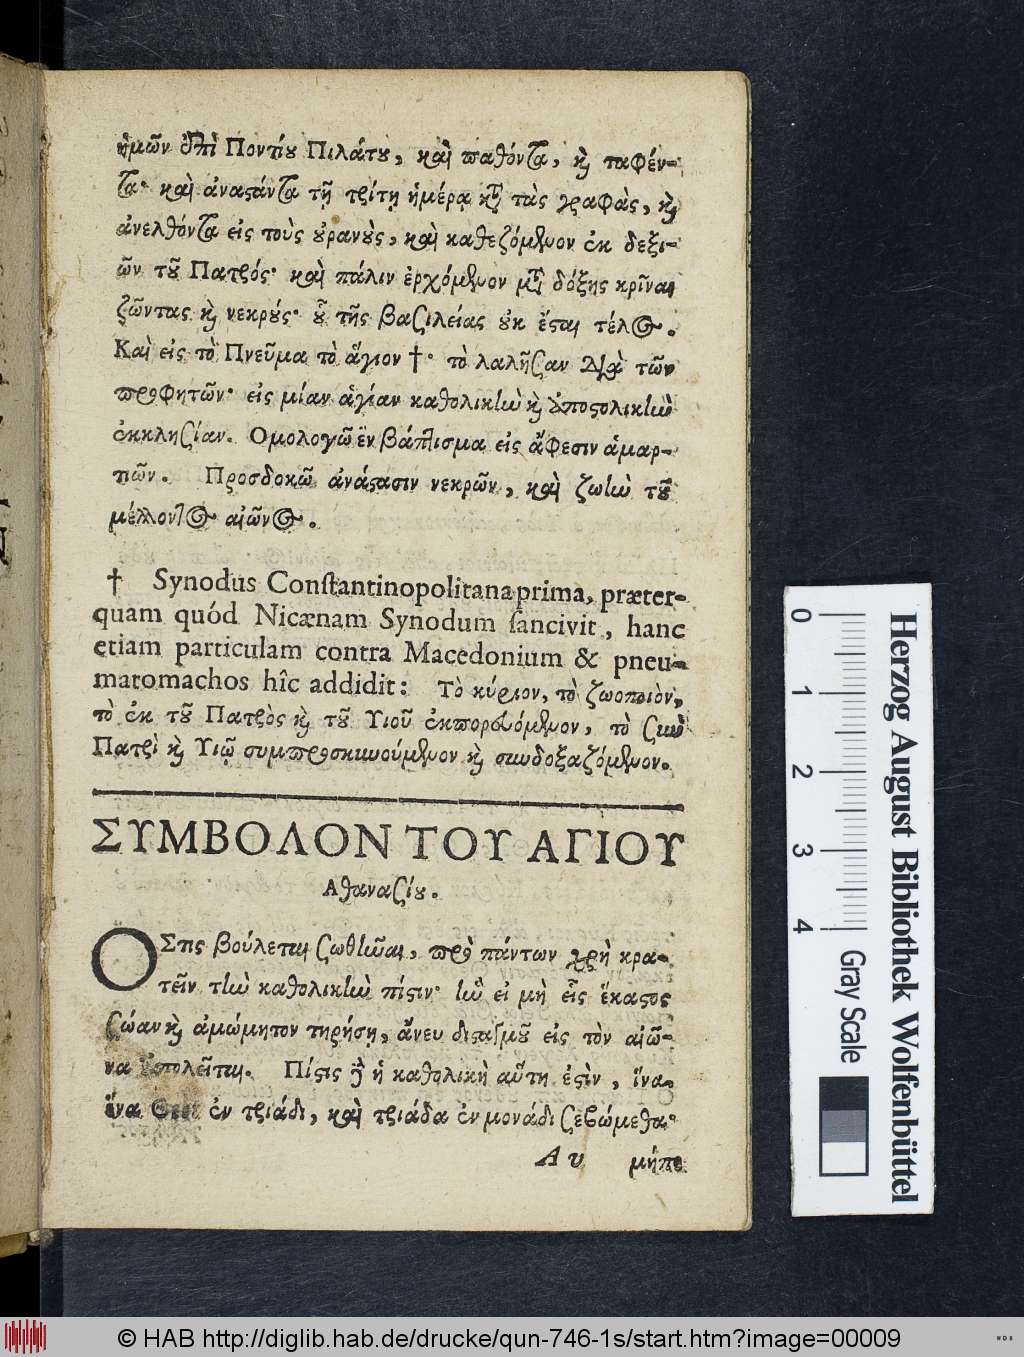 ἡμῶν ἐπὶ Ποντίου Πιλάτου, καὶ παθόντα, καὶ ταφέν-
τα· καὶ ἀναστάντα τῇ τρίτῃ ἡμέρᾳ κατὰ τὰς γραφὰς, καὶ
ἀνελθόντα εἰς τοὺς οὐρανοὺς, καὶ καθεζόμενον ἐκ δεξι-
ῶν τοῦ Πατρός· καὶ πάλιν ἐρχόμενον μετὰ δόξης κρῖναι
ζῶντας καὶ νεκρούς· οὗ τῆς βασιλείας οὐκ ἔσται τέλος.
Καὶ εἰς τὸ Πνεῦμα τὸ ἅγιον †· τὸ λαλῆσαν διὰ τῶν
προφητῶν· εἰς μίαν ἁγίαν καθολικὴν καὶ ἀποστολικὴν
ἐκκλησίαν. Ομολογῶ ἓν βάπτισμα εἰς ἄφεσιν ἁμαρ-
τιῶν. Προσδοκῶ ἀνάστασιν νεκρῶν, καὶ ζωὴν τοῦ
μέλλοντος αἰῶνος.
† Synodus Conſtantinopolitana prima, præter-
quam quód Nicænam Synodum ſancivit, hanc
etiam particulam contra Macedonium & pneu-
matomachos hîc addidit: Τὸ κύριον, τὸ ζωοποιὸν,
τὸ ἐκ τοῦ Πατρὸς καὶ τοῦ Υιοῦ ἐκπορευόμενον, τὸ σὺν
Πατρὶ καὶ Υιῷ συμπροσκυνούμενον καὶ συνδοξαζόμενον.
ΣΥΜΒΟΛΟΝ ΤΟΥ ΑΓΙΟΥ
Αθανασίου.
ΟΣτις βούλεται σωθῆναι, πρὸ πάντων χρὴ κρα-
τεῖν τὴν καθολικὴν πίστιν· ἣν εἰ μὴ εἷς ἕκαστος
σώαν καὶ ἀμώμητον τηρήσῃ, ἄνευ δισταγμοῦ εἰς τὸν αἰῶ-
να ἀπολεῖται. Πίστις δὲ ἡ καθολικὴ αὕτη ἐστὶν, ἵνα
ἕνα Θεὸν ἐν τριάδι, καὶ τριάδα ἐν μονάδι σεβώμεθα·
A v μήτε
0 1 2 3 4
Gray Scale
Herzog August Bibliothek Wolfenbüttel
© HAB http://diglib.hab.de/drucke/qun-746-1s/start.htm?image=00009